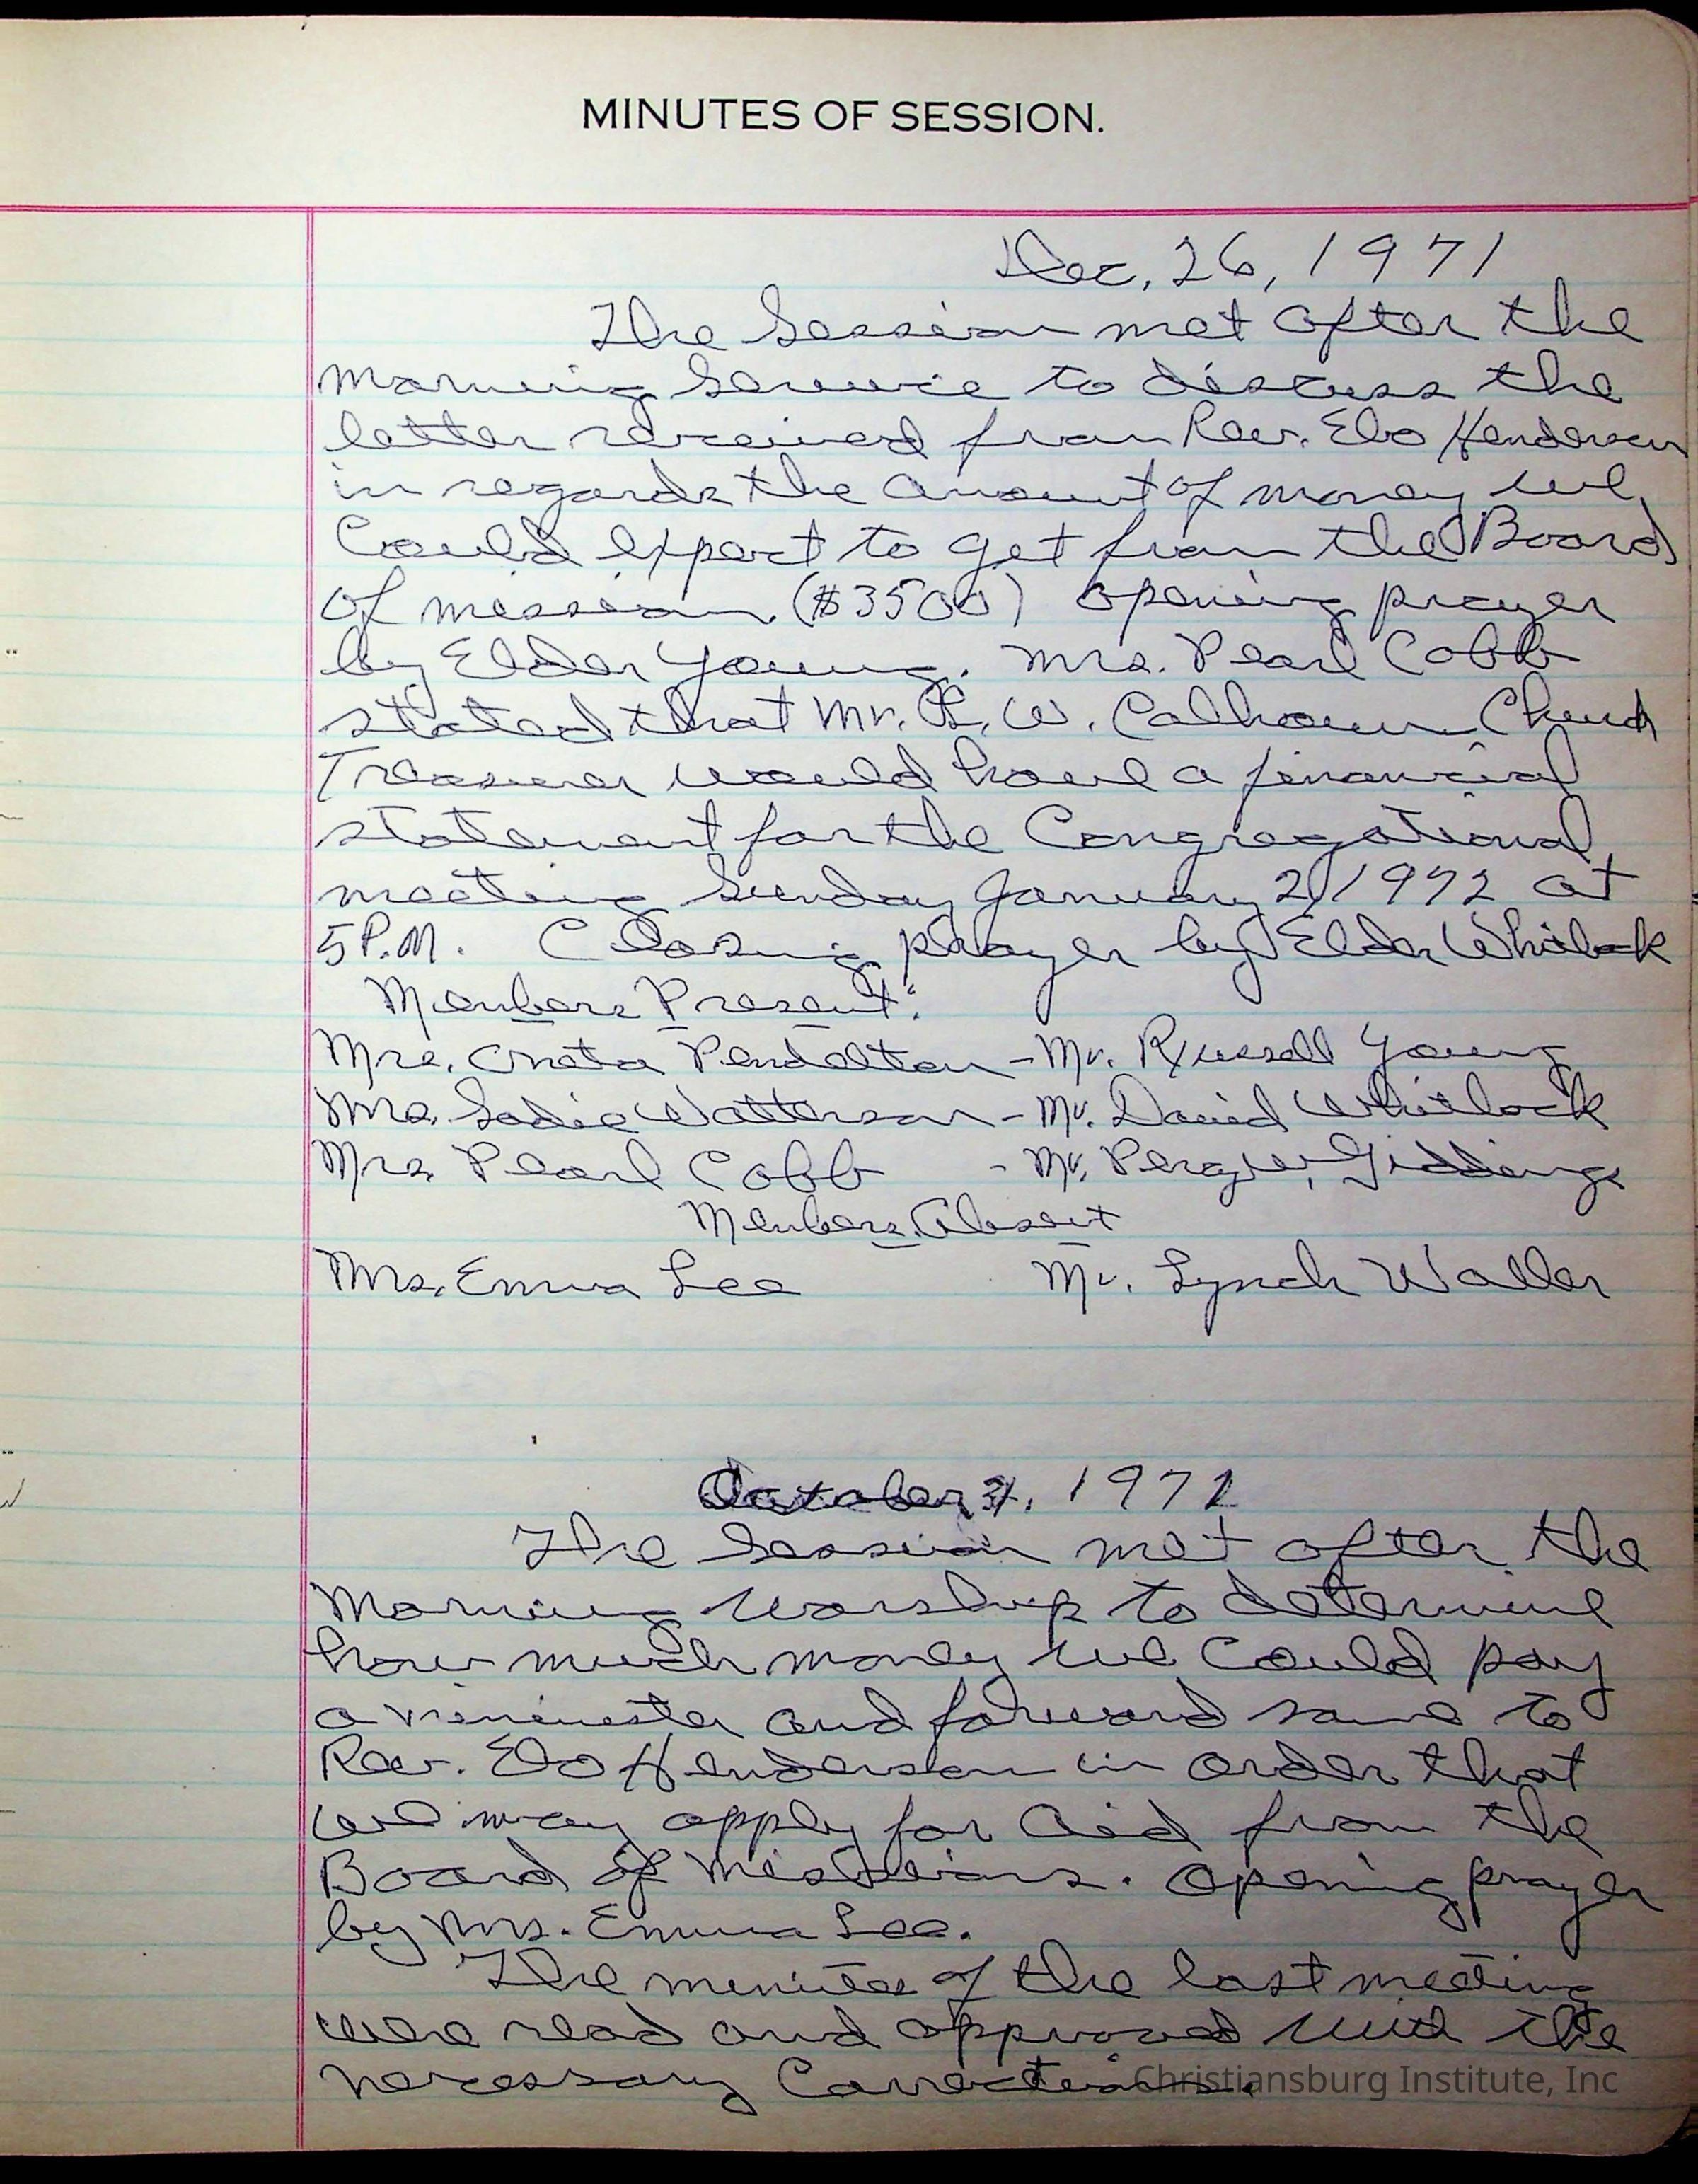 MINUTES OF SESSION.
Dec, 26, 1971
The Session met after the
morning Service to discuss the
letter received from Rev. Elo Henderson
in regards the amount of money we
Could expect to get from the Board
of mission. ($3500) opening prayer
by Elder Young. Mrs. Pearl Cobb
stated that Mr. L. W. Calhoun Church
Treasurer would have a financial
statement for the Congregational
meeting Sunday January 2, 1972 at
5 P.M. Closing prayer by Elder Whitlock
Members Present:
Mrs. Oneta Pendelton - Mr. Russell Young
Mrs. Sadie Watterson - Mr. David Whitlock
Mrs. Pearl Cobb - Mr. Giddings
Members Absent
Mrs. Emma Lee Mr. Lynch Waller
October 1971
The Session met after the
Morning Worship to determine
how much money we could pay
a minister and forward same to
Rev. Elo Henderson in order that
we may apply for aid from the
Board of Missions. Opening prayer
by Mrs. Emma Lee.
The minutes of the last meeting
were read and approved with the
necessary Corrections.
Christiansburg Institute, Inc